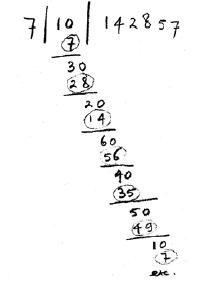 7 | 10 | 142857
7
30
28
20
14
60
56
40
35
50
49
10
7
etc.